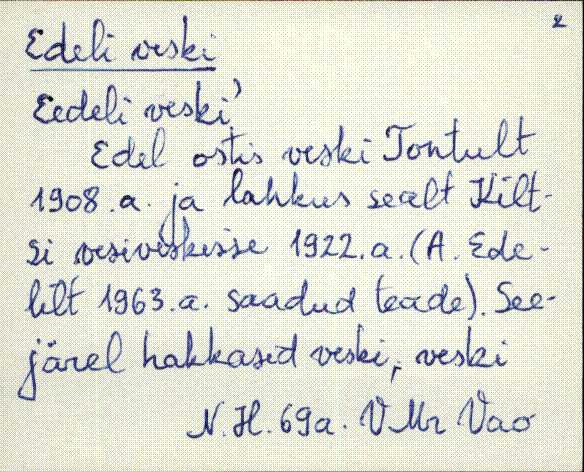 2
Edeli veski
Eedeli veski'
Edel ostis veski Tontult
1908.a. ja lahkus sealt Kilt-
si vesiveskisse 1922.a. (A. Ede-
lilt 1963.a. saadud teade). See-
järel hakkasid veski, veski
N.H. 69a. VMr Vao